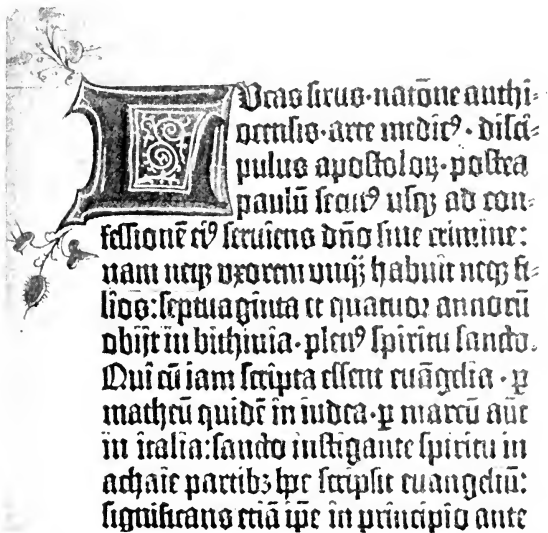 LUcas sirus·natōne anthi=
ocensis·arte medicꝰ·disci=
pulus apostoloꝝ·postea
paulū secutꝰ usqꝫ ad con=
fessionē eiꝰ seruiens dn̄o sine crimine:
nam neqꝫ vxorem unqꝫ̄ habuit neqꝫ fi=
lios: septuaginta et quatuor annorū
obijt in bithinia·plenꝰ spiritu sancto.
Qui cū iam scripta essent euāgelia·ꝑ
matheū quidē in iudea·ꝑ marcū aūt
in italia: sancto instigante spiritu in
achaie partibꝫ hoc scripsit euangeliū:
significans etiā ip̄e in principio ante